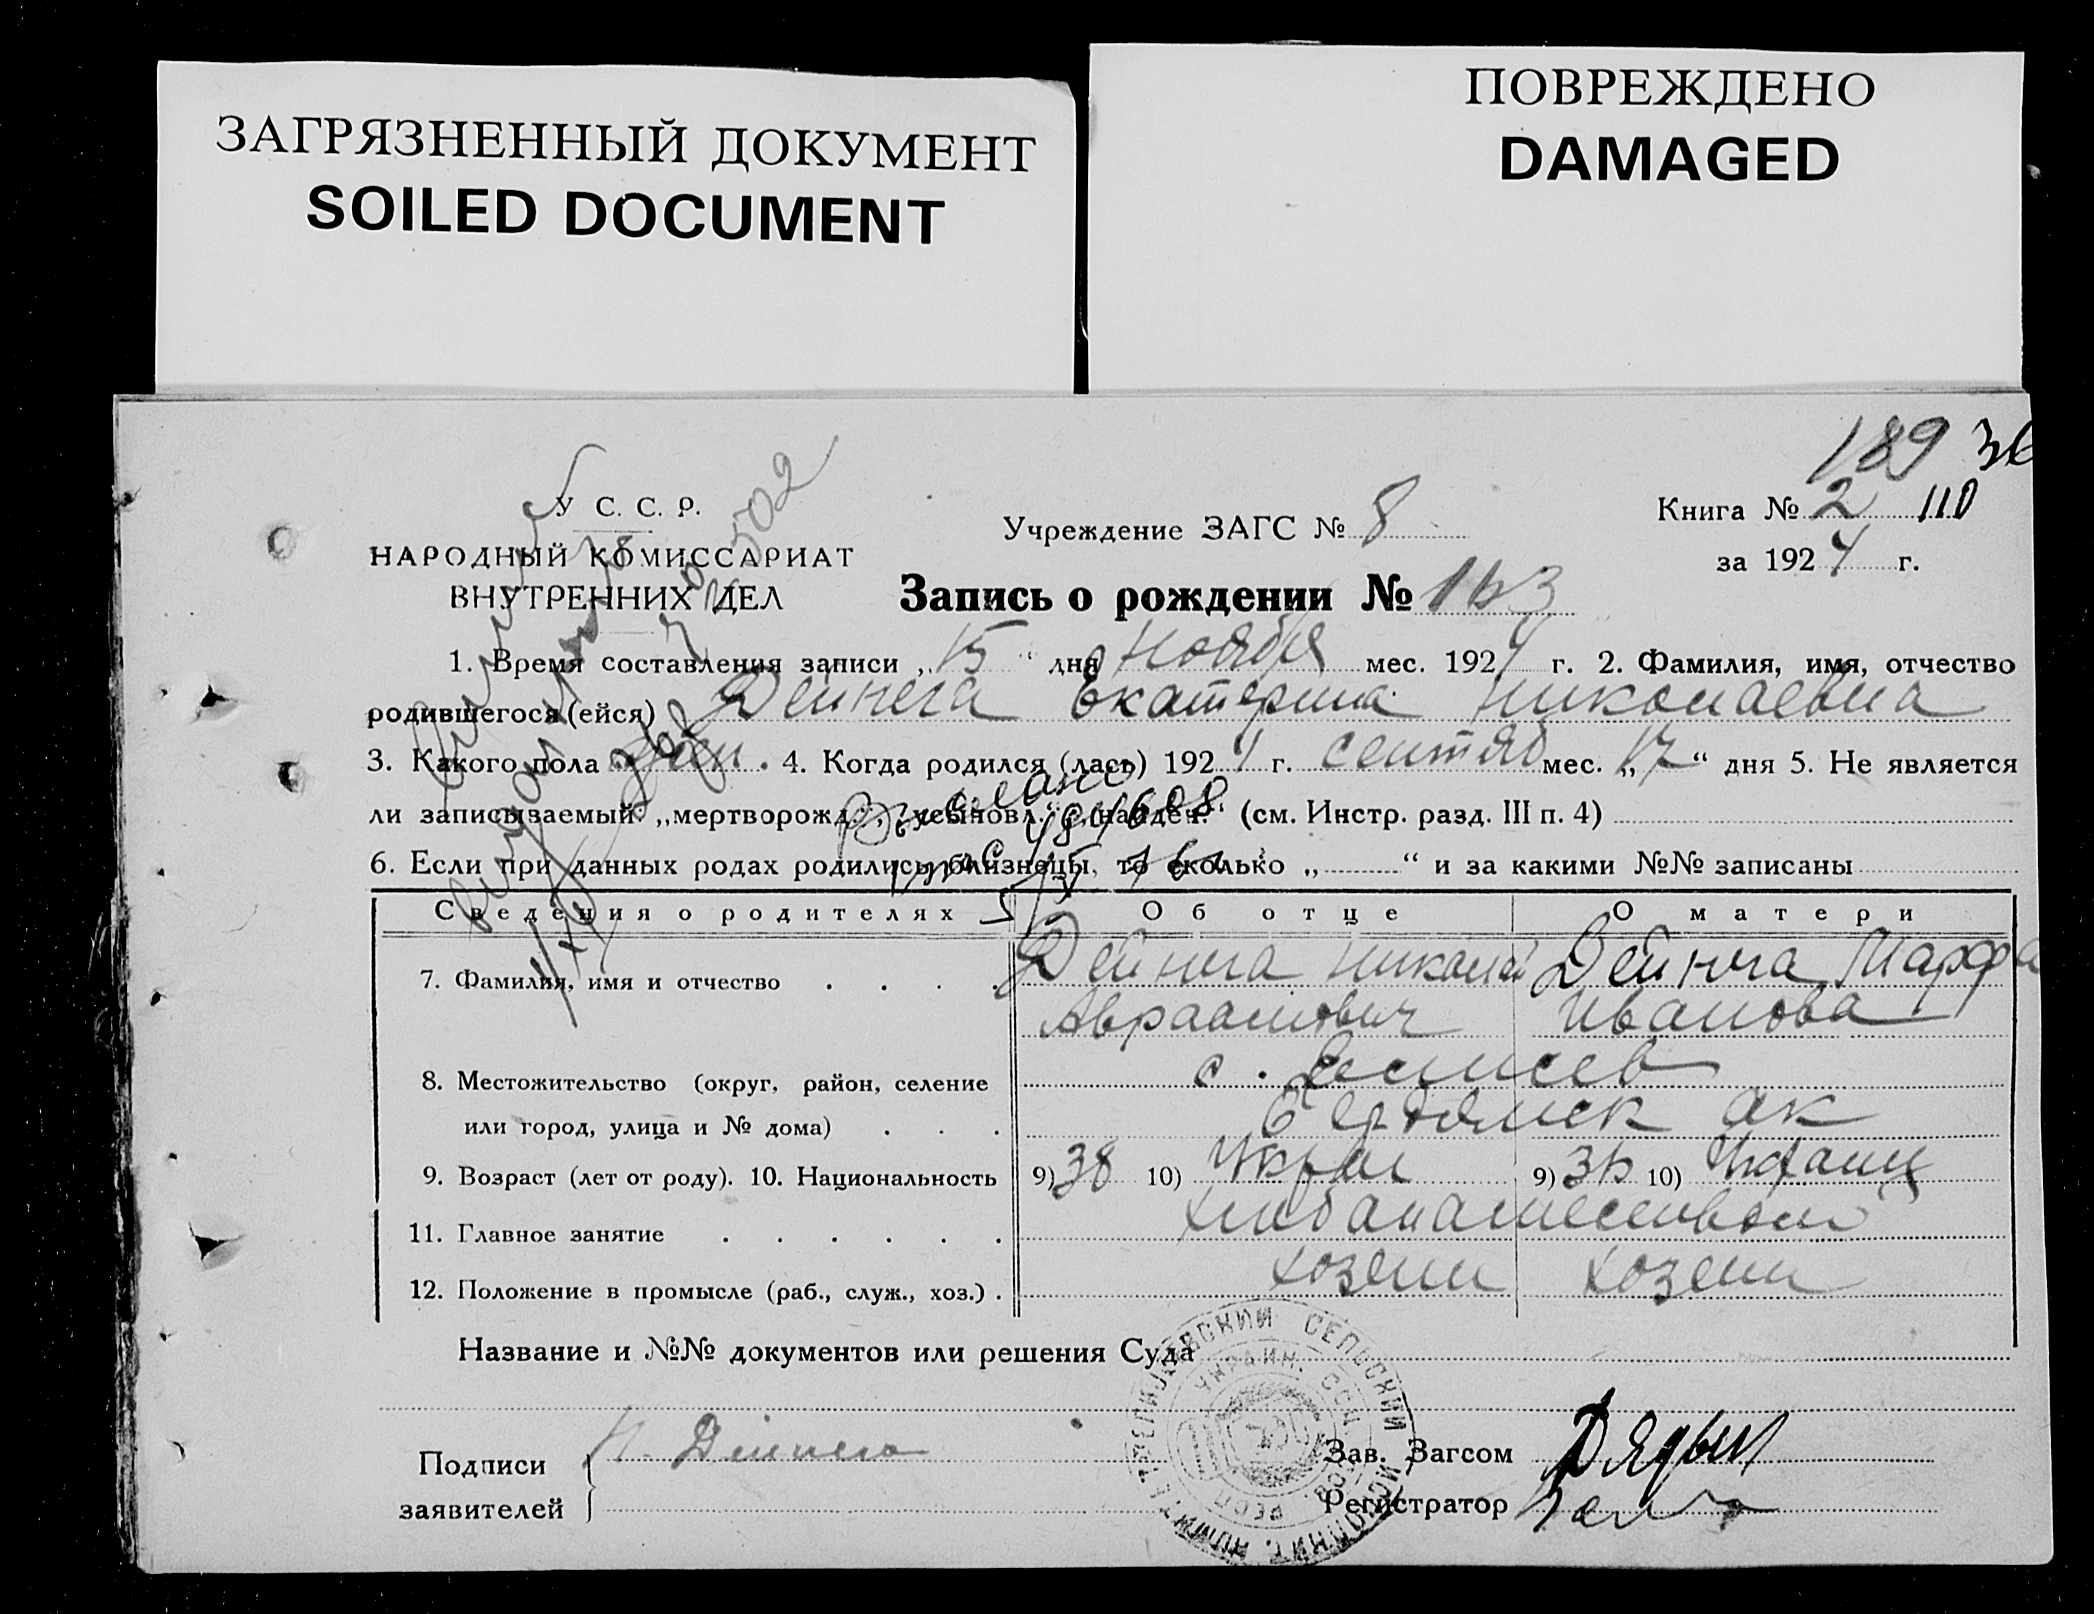 ЗАГРЯЗНЕННЫЙ ДОКУМЕНТ
SOILED DOCUMENT
ПОВРЕЖДЕНО
DAMAGED
189
У С. С. Р.
НАРОДНЫЙ КОМИССАРИАТ
ВНУТРЕННИХ ДЕЛ
502
Учреждение ЗАГС № 8
Книга № 2 110
за 1924 г.
Запись о рождении №
1. Время составления записи „15“ дня Ноября мес. 1924 г. 2. Фамилия, имя, отчество
родившегося (ейся) Дейнега Екатерина Николаевна
3. Какого пола жен. 4. Когда родился (лась) 1924 г. сентяб мес. „17“ дня 5. Не является
ли записываемый: „мертворожд.“, „усыновл.“, „найден.“ (см. Инстр. разд. III п. 4)
6. Если при данных родах родились близнецы, то сколько „ “ и за какими №№ записаны
Сведения о родителях Об отце О матери
7. Фамилия, имя и отчество Дейнега Николай Дейнега Марфа
Авраамович Иванова
8. Местожительство (округ, район, селение с.
или город, улица и № дома) Бердянск ок
9. Возраст (лет от роду). 10. Национальность 9) 38 10) Украи 9) 36 10) Украин
11. Главное занятие
12. Положение в промысле (раб., служ., хоз.) хозяин хозяин
Название и №№ документов или решения Суда
Подписи
заявителей
Н. Дейнега
СЕЛЬСКИЙ ИСПОЛНИТ. КОМИТЕТ
УКРАИН. ССЦ. СОВ. РЕСП.
Зав. Загсом
Регистратор